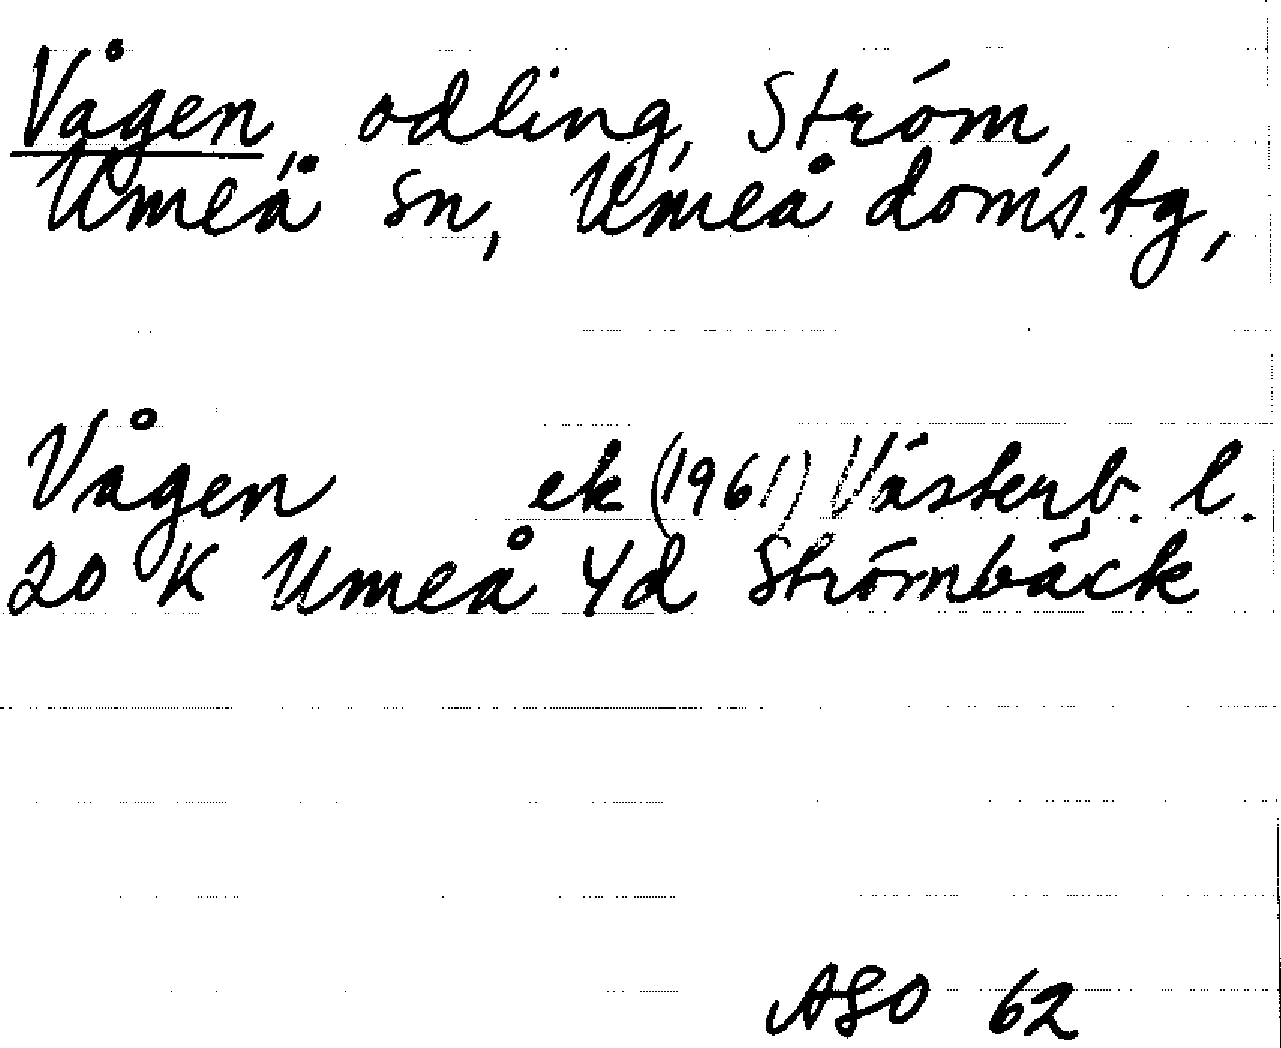 Vågen, odling, Ström,
Umeå sn, Umeå doms. tg,
Vågen ek (1961) Västerb. l.
20 K Umeå 4d Strömbäck
ASO 62